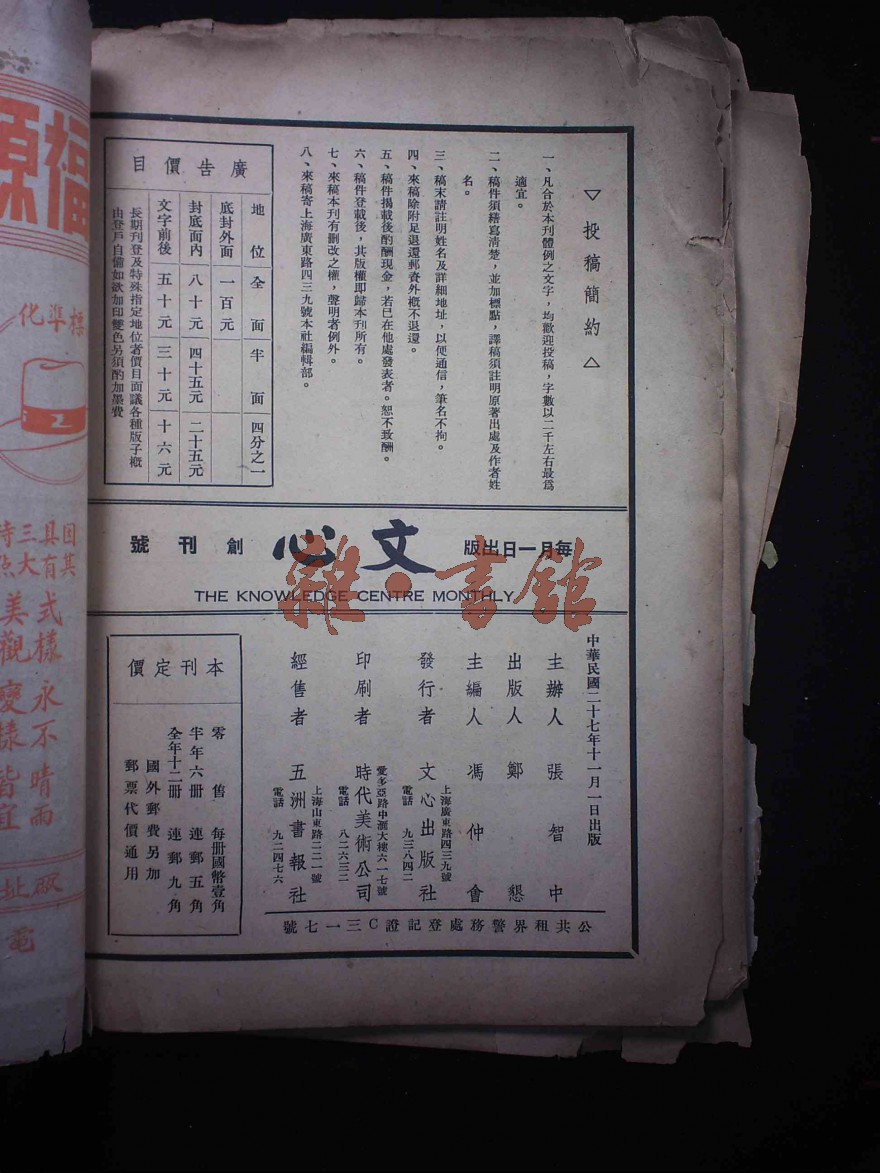 ▽投稿簡約△
一、凡合於本刊體例之文字，均歡迎投稿，字數以二千左右最爲
適宜。
二、稿件須繕寫清楚，並加標點，譯稿須註明原著出處及作者姓
名。
三、稿末請註明姓名及詳細地址，以便通信，筆名不拘。
四、來稿除附足退還郵資外概不退還。
五、稿件揭載後酌酬現金，若已在他處發表者。恕不致酬。
六、稿件登載後，其版權即歸本刊所有。
七、來稿本刊有刪改之權，聲明者例外。
八、來稿寄上海廣東路四三九號本社編輯部。
廣告價目
地位 全面 半面 四分之一
底封外面 一百元
封底面內 八十元 四十五元 二十五元
文字前後 五十元 三十元 十六元
長期刊登及特殊指定地位者價目面議各種版子概
由登戶自備如欲加印雙色另須酌加墨費
每月一日出版
文心
創刊號
THE KNOWLEDGE CENTRE MONTHLY
雜·書館
中華民國二十七年十一月一日出版
主辦人 張智中
出版人 鄭懇
主編人 馮仲會
發行者 文心出版社
上海廣東路四三九號
電話 九三八四二
印刷者 時代美術公司
愛多亞路中滙大樓六一七號
電話 八二六三二
經售者 五洲書報社
上海山東路二二一號
電話 九二四七六
公共租界警務處登記證C三一七號
本刊定價
零售 每册國幣壹角
半年六册 連郵五角
全年十二册 連郵九角
國外郵費另加
郵票代價通用
福源
標準化
式樣永不
美觀
晴雨
皆宜